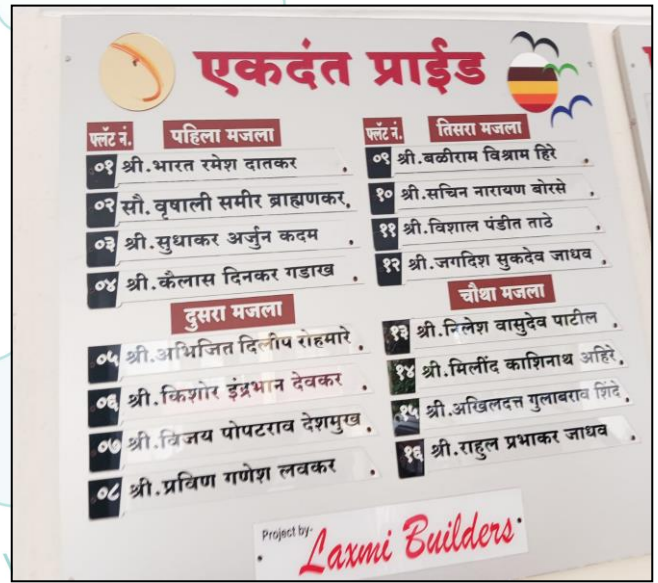 एकदंत प्राईड
फ्लॅट नं. पहिला मजला
०१ श्री.भारत रमेश दातकर
०२ सौ. वृषाली समीर ब्राह्मणकर
०३ श्री.सुधाकर अर्जुन कदम
०४ श्री.कैलास दिनकर गडाख
दुसरा मजला
०५ श्री.अभिजित दिलीप रोहमारे
०६ श्री.किशोर इंद्रभान देवकर
०७ श्री.विजय पोपटराव देशमुख
०८ श्री.प्रविण गणेश लवकर
फ्लॅट नं. तिसरा मजला
०९ श्री.बळीराम विश्राम हिरे
१० श्री.सचिन नारायण बोरसे
११ श्री.विशाल पंडीत ताठे
१२ श्री.जगदिश सुकदेव जाधव
चौथा मजला
१३ श्री.निलेश वासुदेव पाटील
१४ श्री.मिलींद काशिनाथ अहिरे
१५ श्री.अखिलदत्त गुलाबराव शिंदे
१६ श्री.राहुल प्रभाकर जाधव
Project by-
Laxmi Builders